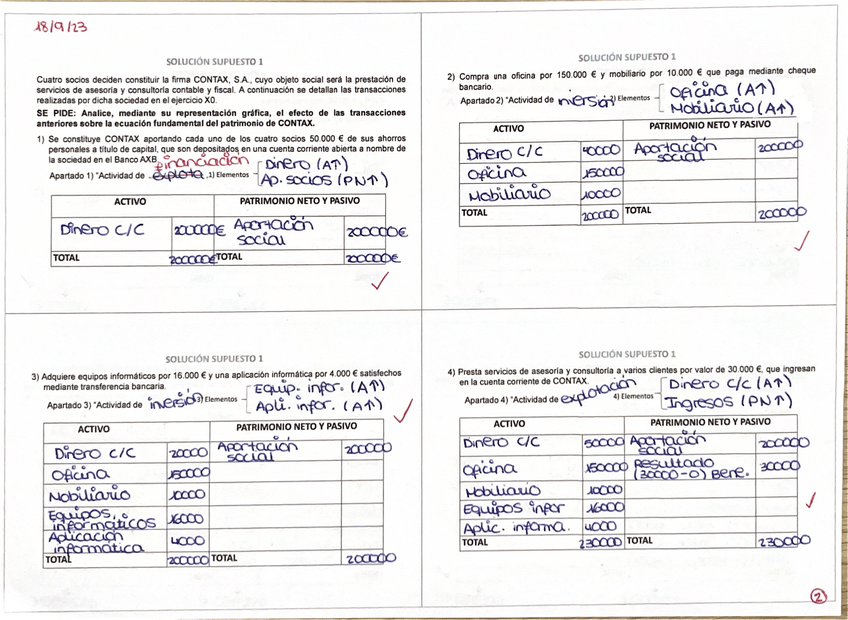 18/9/23
SOLUCIÓN SUPUESTO 1
Cuatro socios deciden constituir la firma CONTAX, S.A., cuyo objeto social será la prestación
de servicios de asesoría y consultoría contable y fiscal. A continuación se detallan las transacciones
realizadas por dicha sociedad en el ejercicio X0.
SE PIDE: Analice, mediante su representación gráfica, el efecto de las transacciones
anteriores sobre la ecuación fundamental del patrimonio de CONTAX.
1) Se constituye CONTAX aportando cada uno de los cuatro socios 50.000 € de sus ahorros
personales a título de capital, que son depositados en una cuenta corriente abierta a nombre de
la sociedad en el Banco AXB.
financiación
Apartado 1) "Actividad de explota. 1) Elementos
Dinero (A↑)
Ap. socios (PN↑)
ACTIVO PATRIMONIO NETO Y PASIVO
Dinero C/C 200000€ Aportación social 200000€
TOTAL 200000€ TOTAL 200000€
SOLUCIÓN SUPUESTO 1
2) Compra una oficina por 150.000 € y mobiliario por 10.000 € que paga mediante cheque
bancario.
Apartado 2) "Actividad de inversión 2) Elementos
Oficina (A↑)
Mobiliario (A↑)
ACTIVO PATRIMONIO NETO Y PASIVO
Dinero C/C 40000 Aportación social 200000
Oficina 150000
Mobiliario 10000
TOTAL 200000 TOTAL 200000
SOLUCIÓN SUPUESTO 1
3) Adquiere equipos informáticos por 16.000 € y una aplicación informática por 4.000 € satisfechos
mediante transferencia bancaria.
Apartado 3) "Actividad de inversión 3) Elementos
Equip. infor. (A↑)
Apli. infor. (A↑)
ACTIVO PATRIMONIO NETO Y PASIVO
Dinero C/C 20000 Aportación social 200000
Oficina 150000
Mobiliario 10000
Equipos informáticos 16000
Aplicación informática 4000
TOTAL 200000 TOTAL 200000
SOLUCIÓN SUPUESTO 1
4) Presta servicios de asesoría y consultoría a varios clientes por valor de 30.000 €, que ingresan
en la cuenta corriente de CONTAX.
Apartado 4) "Actividad de explotación 4) Elementos
Dinero C/C (A↑)
Ingresos (PN↑)
ACTIVO PATRIMONIO NETO Y PASIVO
Dinero C/C 50000 Aportación social 200000
Oficina 150000 Resultado (30000-0) Bene. 30000
Mobiliario 10000
Equipos infor 16000
Aplic. informa. 4000
TOTAL 230000 TOTAL 230000
2